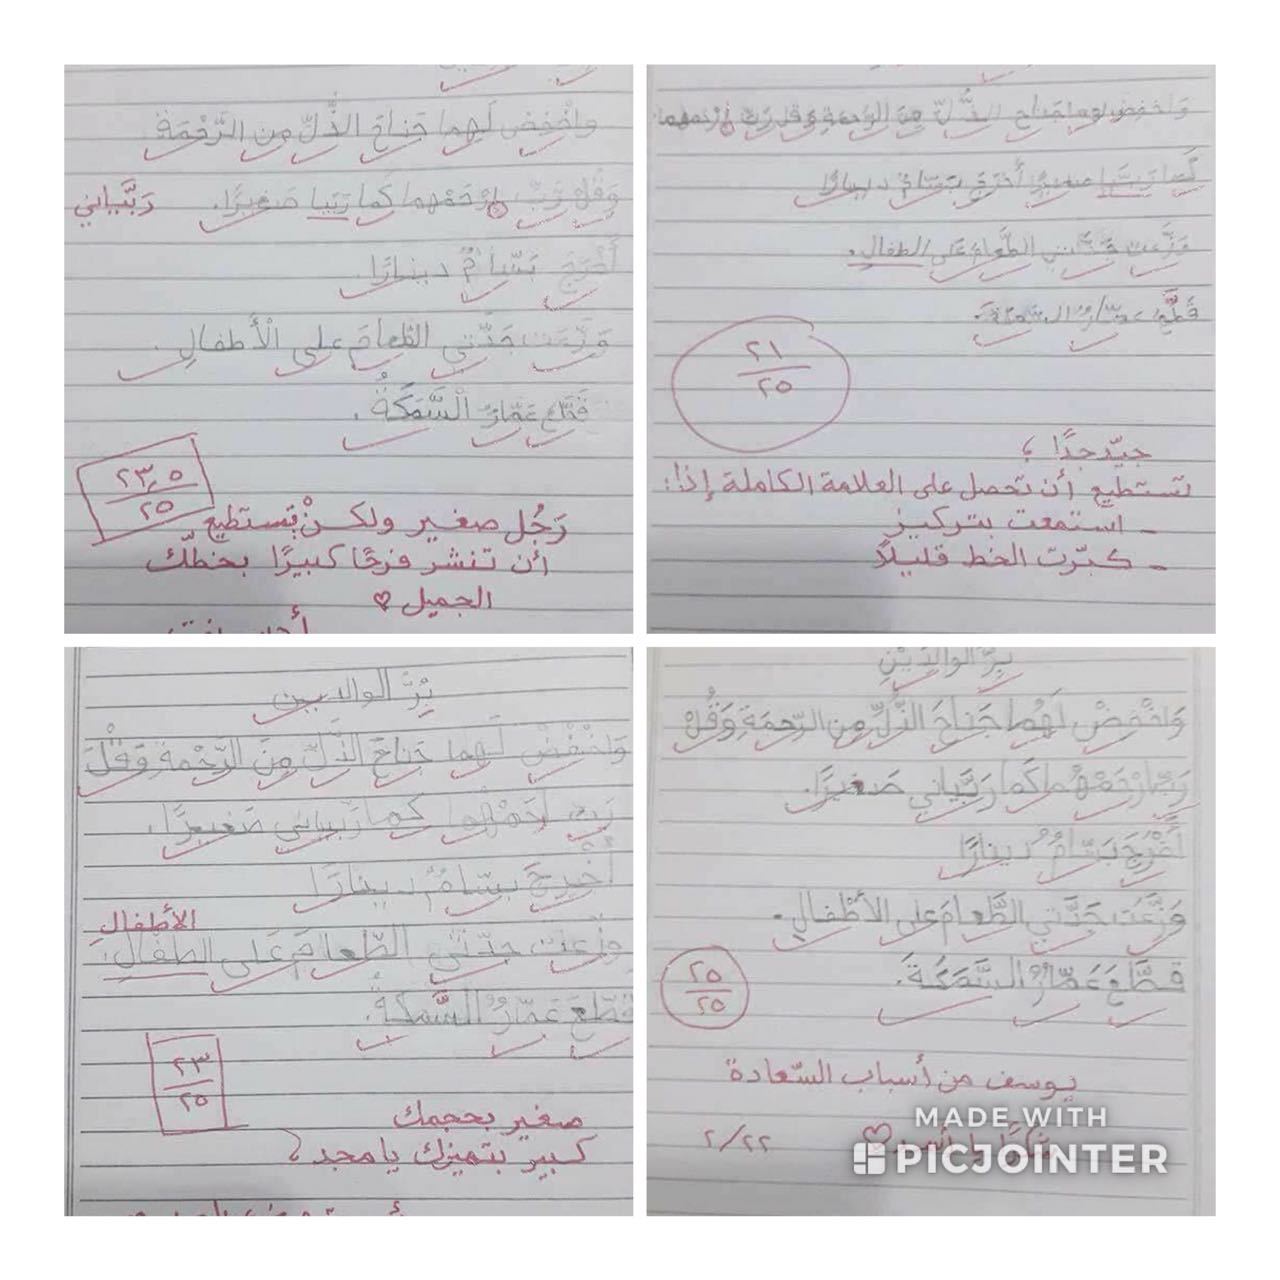 واخْفِض لَهما جَناحَ الذُّلِّ مِن الرَّحْمَة
وَقُلْ رَبِّ ارْحَمْهما كَما رَبَّيا صَغيرًا.
رَبَّياني
أَخْرَجَ بَسّامٌ دينارًا.
وَزَّعَت جَدَّتي الطَّعامَ على الْأَطفالِ.
قَطَّعَ عَمّارٌ السَّمَكَةُ.
٢٣,٥
٢٥
رَجُل صغير ولكنْ تستطيع
أن تنشر فرحًا كبيرًا بخطّك
الجميل ♡
أحسنت
وَاخفِض لهما جَناح الذُّلّ مِنَ الرَحمةِ وَقل رَبّ ارْحمهما
كَما رَبيّا صغيرًا أَخرَجَ بَسّامٌ دينارًا
وَزَّعت جَدَّتي الطَّعامَ عَلى الطفالِ.
قَطَّعَ عمّارٌ السَمكةَ.
٢١
٢٥
جيّد جدًا،
تستطيع أن تحصل على العلامة الكاملة إذا:
- استمعت بتركيز
- كبّرت الخط قليلًا
بِّرُ الوالديين
وَاخْفْضْ لَهما جَناحَ الذُلِّ مِنَ الرَّحْمة وَقْلَ
رَبِ ارحَمْهُما كما رَبياني صَغيرًا.
أَخْرجَ بسّامٌ دينارًا
وزْعت جدّتي الطّعامَ عَلى الطفالِ.
الأطفالِ
قطّعَ عَمّارٌ السَّمَكةَ.
٢٣
٢٥
صغير بحجمك
كبير بتميزك يا مجد
بِرُّ الوالِدَيْنِ
وَاخْفِضْ لَهُما جَناحَ الذُّلِّ مِن الرّحمَةِ وَقُلْ
رَبِّ ارْحَمْهُما كَما رَبَّياني صَغيرًا.
أَخْرَجَ بَسّامٌ دينارًا
وَزَّعَت جَدَّتي الطَّعامَ على الأَطْفالِ.
قطَّعَ عَمّارٌ السَّمَكَةَ.
٢٥
٢٥
يوسف من أسباب السّعادة
شكرًا يا ♡
٢/٢٢
MADE WITH
PICJOINTER